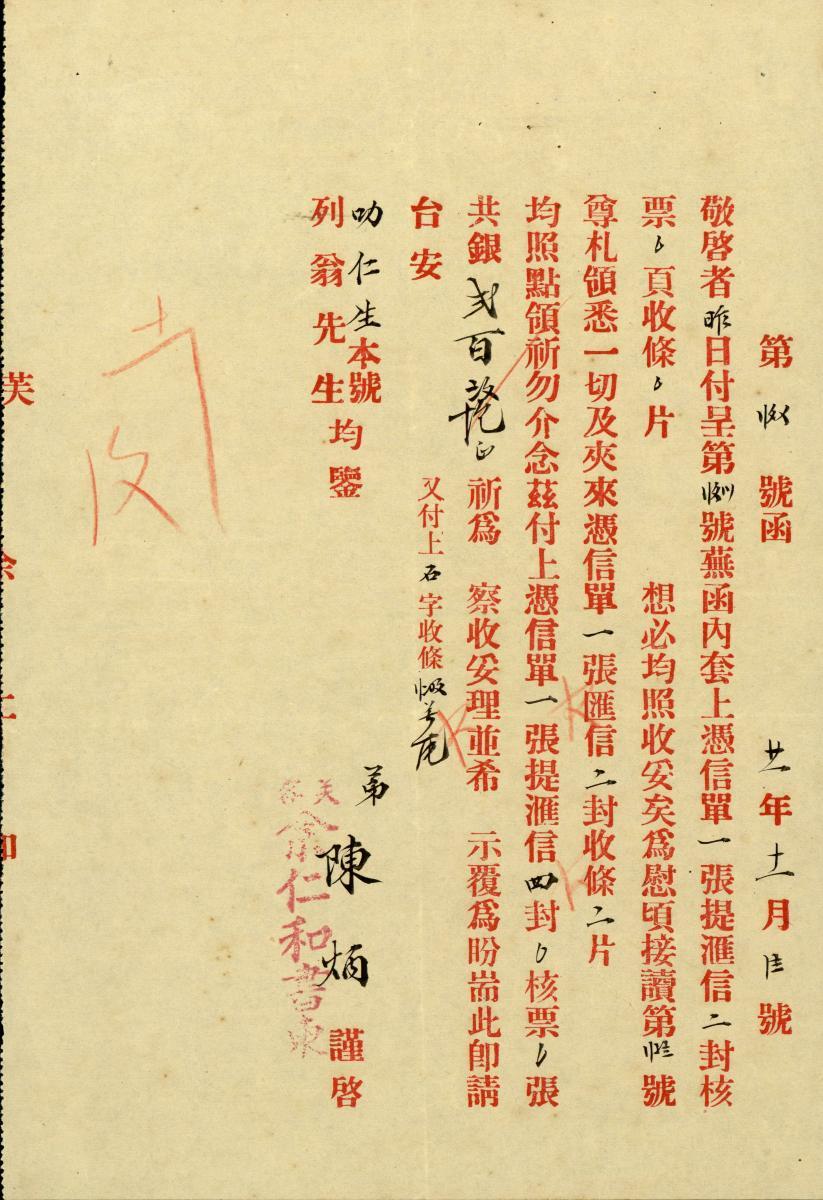 第 號函 廿一年十一月 號
敬啓者昨日付呈第 號蕪函內套上憑信單一張提滙信二封核
票〇頁收條〇片 想必均照收妥矣爲慰頃接讀第 號
尊札領悉一切及夾來憑信單一張匯信二封收條二片
均照點領祈勿介念茲付上憑信單一張提滙信四封〇核票〇張
共銀弍百 正祈爲 察收妥理並希 示覆爲盼耑此卽請
台安 又付上石字收條
叻仁生本號
列翁先生均鑒
弟陳炳謹啓
芙蓉
余仁和書柬
芙 余 仁 和